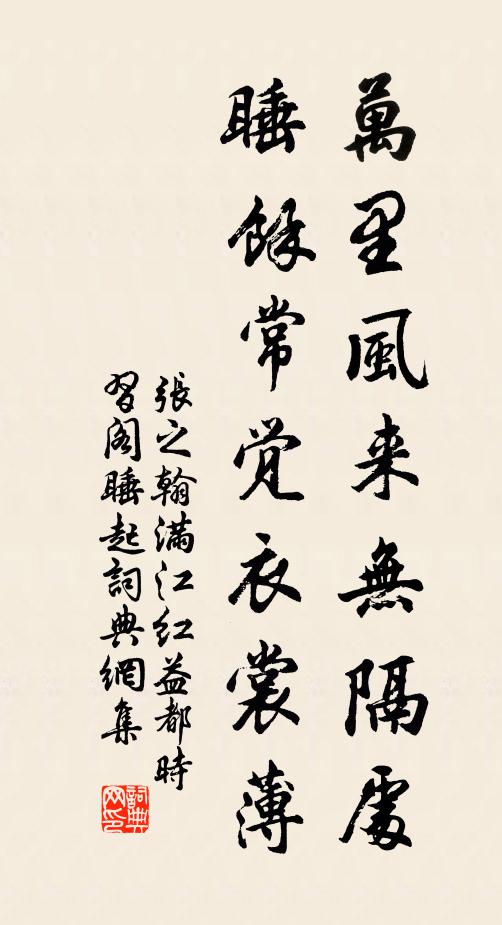 萬里風来無隔處
睡餘常覺衣裳薄
張之翰滿江紅益都時
習閣睡起詞典網集
詞典网印